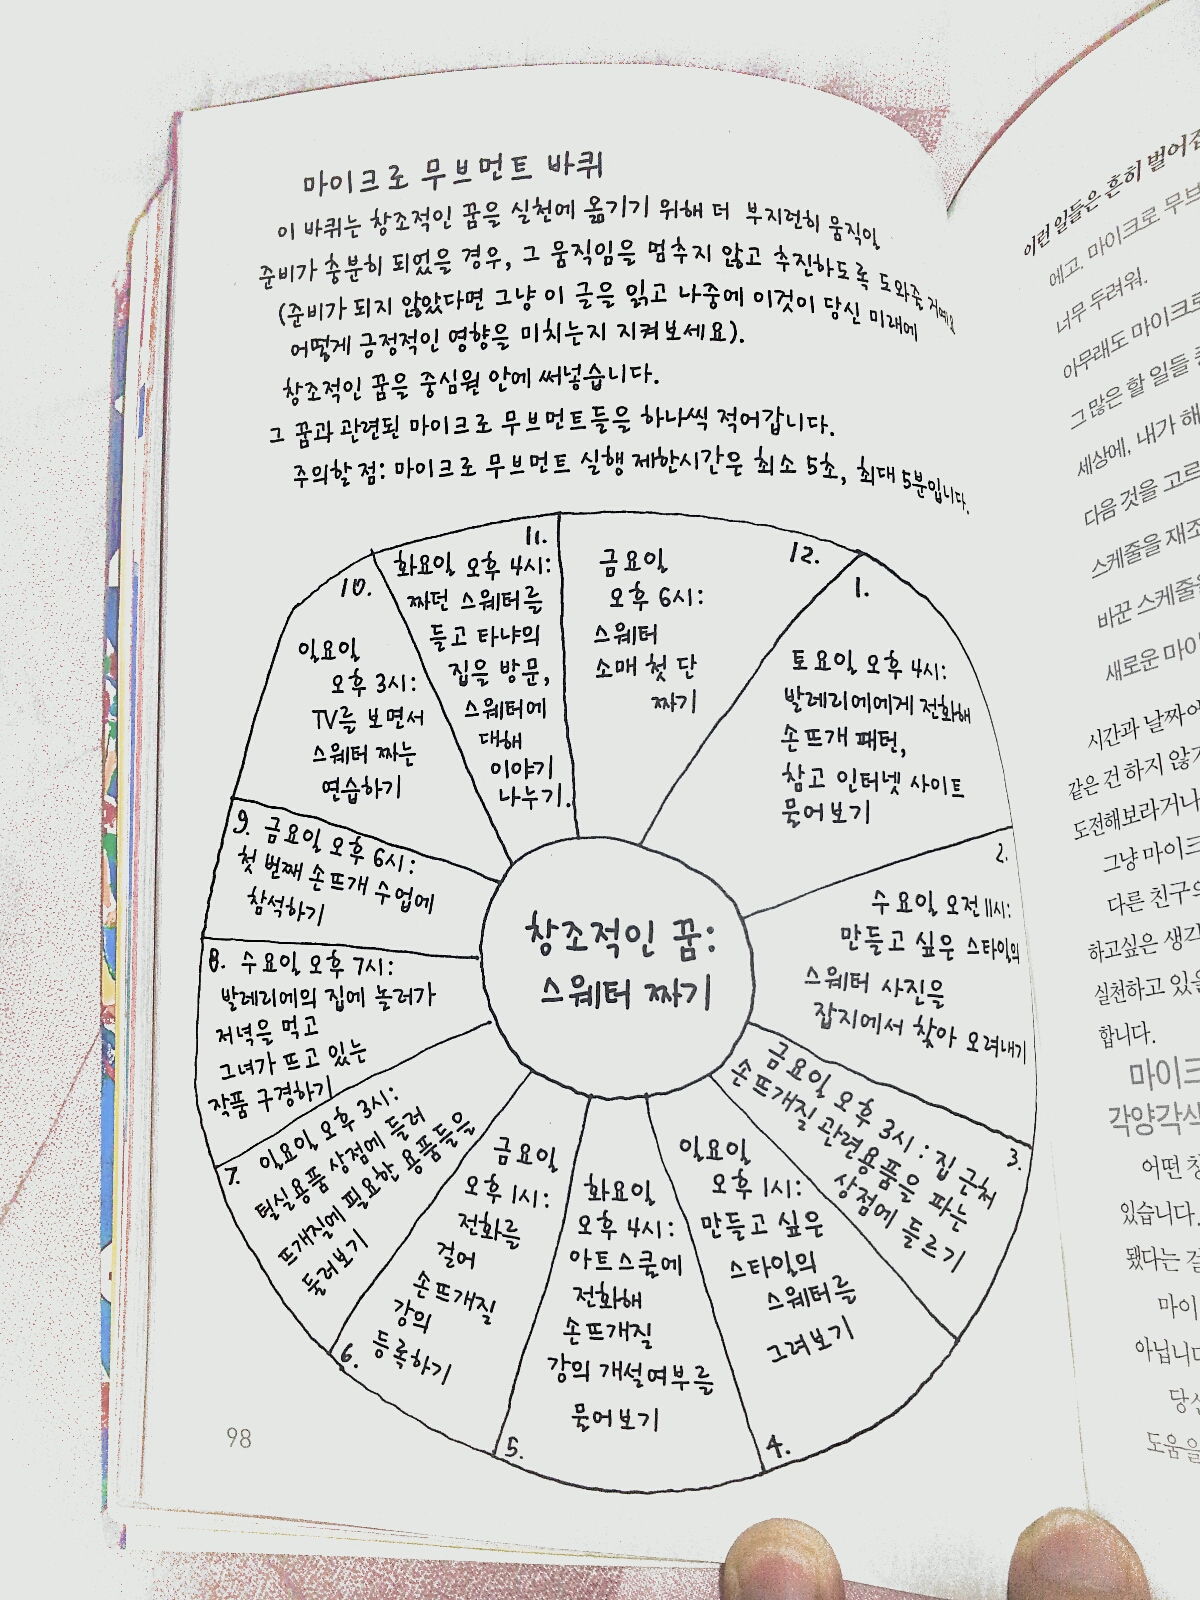 마이크로 무브먼트 바퀴
이 바퀴는 창조적인 꿈을 실천에 옮기기 위해 더 부지런히 움직일
준비가 충분히 되었을 경우, 그 움직임을 멈추지 않고 추진하도록 도와줄 거예요
(준비가 되지 않았다면 그냥 이 글을 읽고 나중에 이것이 당신 미래에
어떻게 긍정적인 영향을 미치는지 지켜보세요).
창조적인 꿈을 중심원 안에 써넣습니다.
그 꿈과 관련된 마이크로 무브먼트들을 하나씩 적어갑니다.
주의할 점: 마이크로 무브먼트 실행 제한시간은 최소 5초, 최대 5분입니다.
창조적인 꿈:
스웨터 짜기
1.
토요일 오후 4시:
발레리에에게 전화해
손뜨개 패턴,
참고 인터넷 사이트
물어보기
2.
수요일 오전 11시:
만들고 싶은 스타일의
스웨터 사진을
잡지에서 찾아 오려내기
3.
금요일 오후 3시: 집 근처
손뜨개질 관련용품을 파는
상점에 들르기
4.
일요일
오후 1시:
만들고 싶은
스타일의
스웨터를
그려보기
5.
화요일
오후 4시:
아트스쿨에
전화해
손뜨개질
강의 개설여부를
물어보기
6.
금요일
오후 1시:
전화를
걸어
손뜨개질
강의
등록하기
7.
일요일 오후 3시:
털실용품 상점에 들러
뜨개질에 필요한 용품들을
둘러보기
8. 수요일 오후 7시:
발레리에의 집에 놀러가
저녁을 먹고
그녀가 뜨고 있는
작품 구경하기
9. 금요일 오후 6시:
첫 번째 손뜨개 수업에
참석하기
10.
일요일
오후 3시:
TV를 보면서
스웨터 짜는
연습하기
11.
화요일 오후 4시:
짜던 스웨터를
들고 타냐의
집을 방문,
스웨터에
대해
이야기
나누기.
12.
금요일
오후 6시:
스웨터
소매 첫 단
짜기
98
이런 일들은 흔히 벌어
에고, 마이크로 무브
너무 두려워.
아무래도 마이크로
그 많은 할 일들
세상에, 내가 해
다음 것을 고르
스케줄을 재조
바꾼 스케줄을
새로운 마이
시간과 날짜
같은 건 하지 않
도전해보라거나
그냥 마이크
다른 친구의
하고싶은 생각
실천하고 있을
합니다.
마이크
각양각색
어떤 창
있습니다.
됐다는 걸
마이
아닙니다
당신
도움을